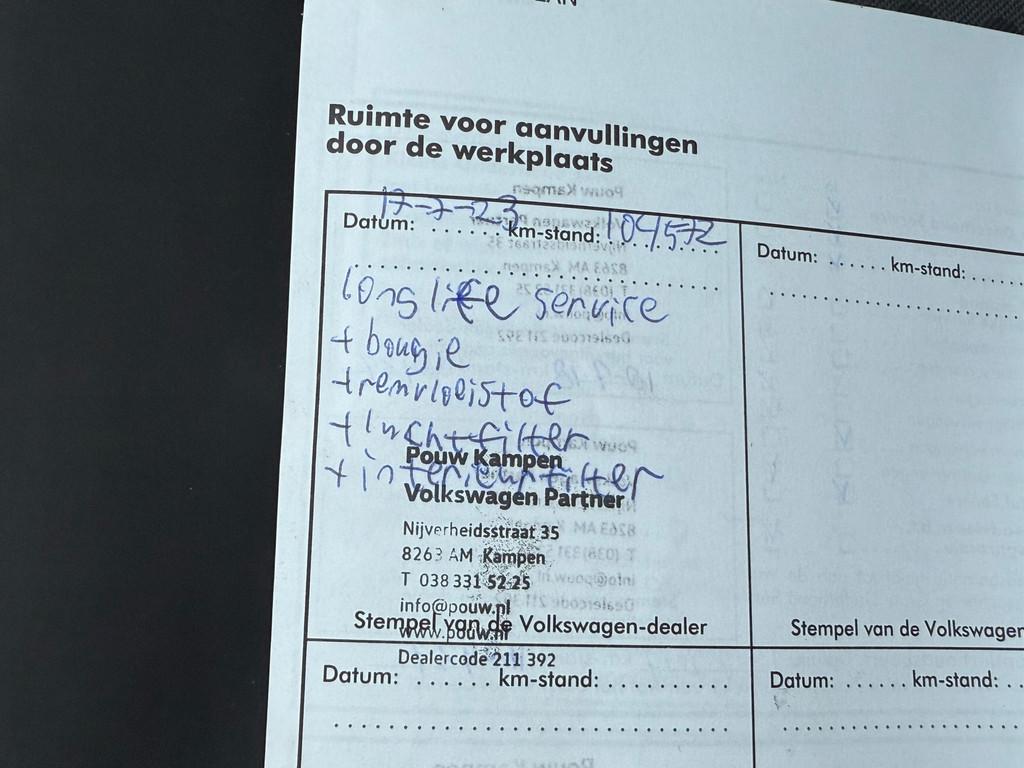 Ruimte voor aanvullingen
door de werkplaats
17-7-23 104572
Datum: ....... km-stand: ...........
long life service
+ bougie
+ remvloeistof
+ luchtfilter
+ interieurfilter
Pouw Kampen
Volkswagen Partner
Nijverheidsstraat 35
8263 AM Kampen
T 038 331 52 25
info@pouw.nl
www.pouw.nl
Dealercode 211 392
Stempel van de Volkswagen-dealer
Datum: ...... km-stand:
Stempel van de
Datum: ....... km-stand: ...........
Datum: ...... km-stand: